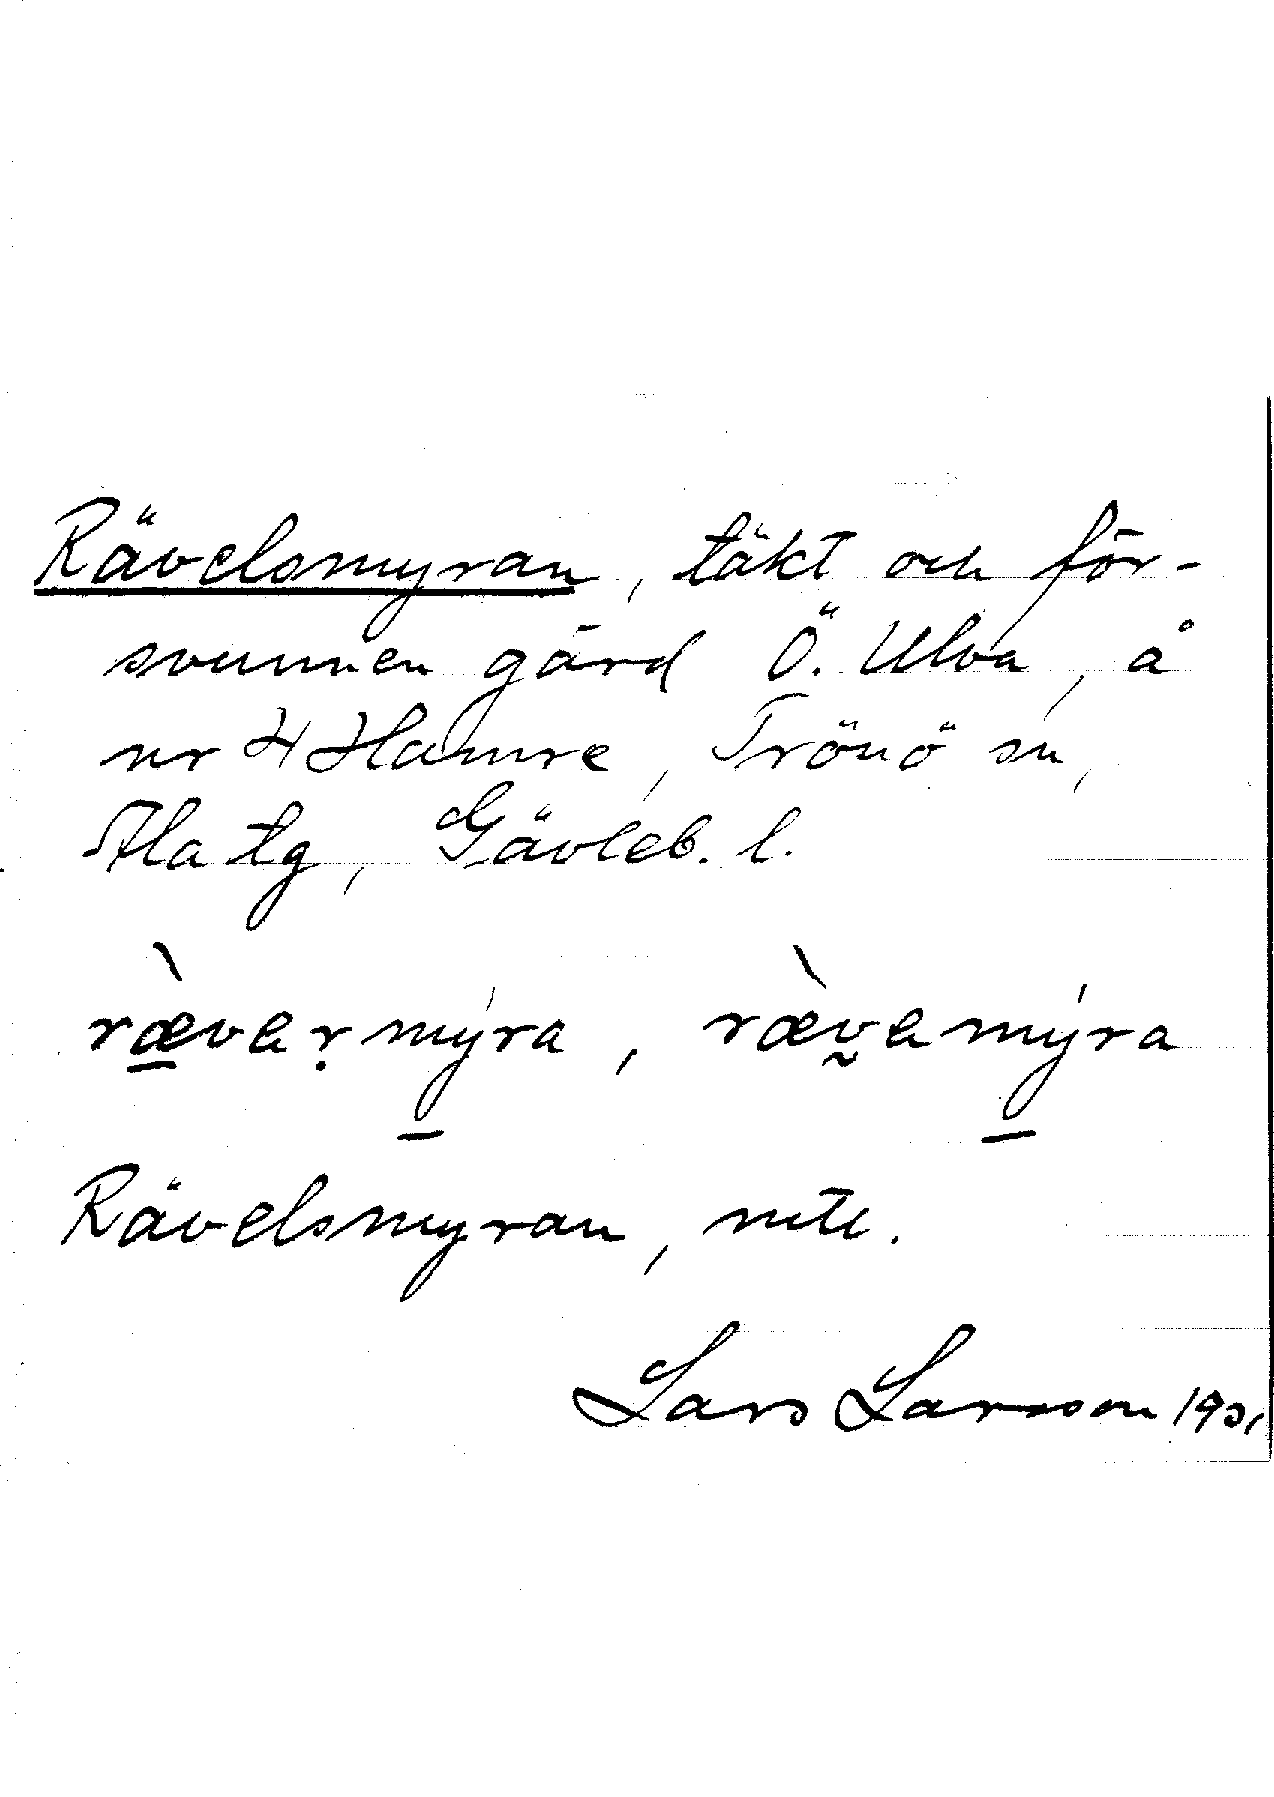 Rävelsmyran, täkt och för-
svunnen gård Ö. Ulva, å
nr 4 Hamre, Trönö sn,
Ala tg, Gävleb. l.
ræ̀vaṛmýra, ræ̀vamýra
Rävelsmyran,
Lars Larsson